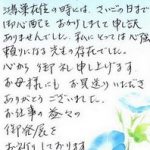 満華花屋の時には、さいごの日まで
御心配を おかけしまして 申し訳
ありませんでした。私にとっては心強
頼りになる先生の存在でした。
心から 御礼 申し上げます
お母様にも お見送りいただき
ありがとう ございました。
お仕事の 益々の
御発展を
お祈りしております